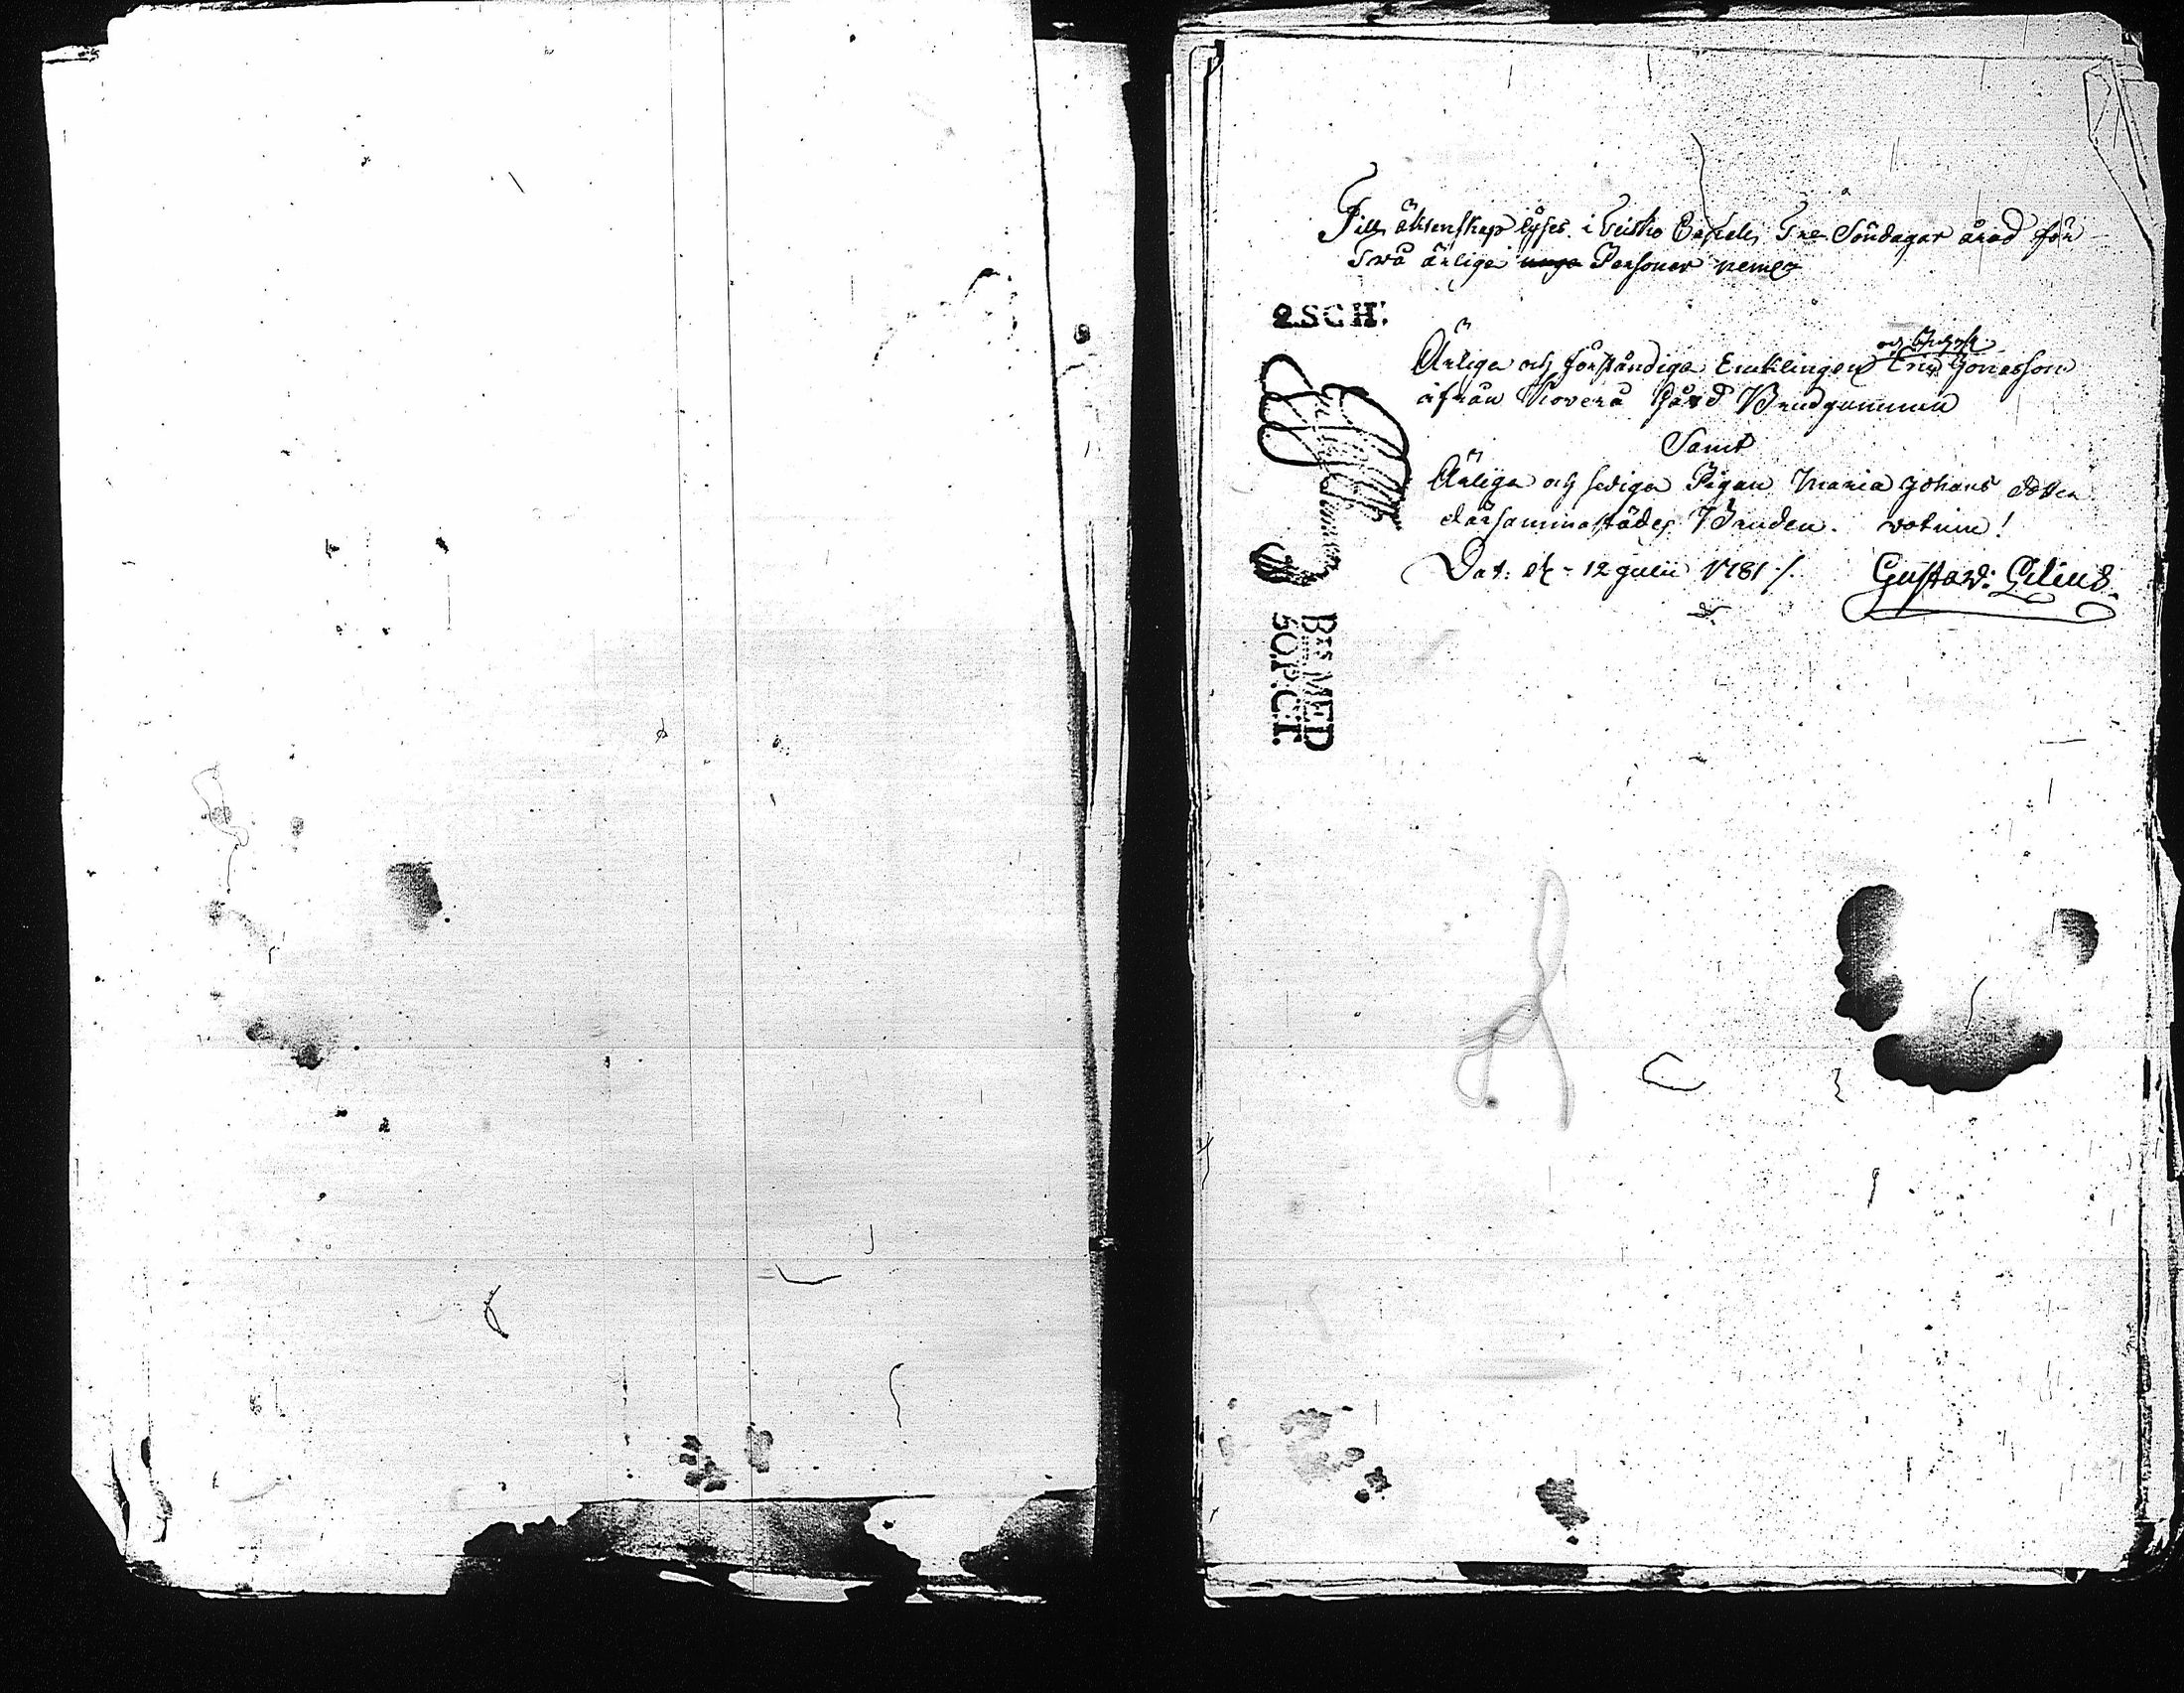 Till äktenskap lyses i Teisko Capell, Tre Söndagar årad för
Twå ärlige unga Personer neml
2.SCH:
Ärlige och förståndige Enklingen Eric Jonasson
ifrån Kovera Gård Brudgummen
Samt
Ärliga och sediga Pigan Maria Johans dotter
därsammastädes Bruden. votum!
Dat: 12 Julii 1781 /. Gustav: Gilius.
BEF. MED
50.P.CT.